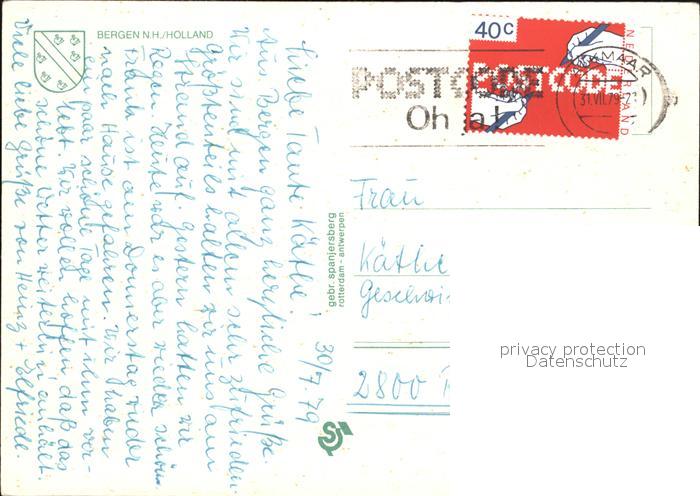 BERGEN N.H./HOLLAND
40c
NEDERLAND
POSTCODE
POSTCODE
Oh ja!
ALKMAAR
31.VII.79
30/7 79
Liebe Tante Käthe!
Aus Bergen ganz herzliche Grüße.
Wir sind mit allem sehr zufrieden.
Größtenteils halten wir uns am
Strand auf. Gestern hatten wir
Regen heute war es aber wieder schön.
Frank ist am Donnerstag wieder
nach Hause gefahren. Wir haben
ein paar schöne Tage mit ihm ver-
lebt. Wir wollen hoffen daß das
schöne Wetter weiterhin anhält.
Viele liebe Grüße von Heinz + Elfriede.
gebr. spanjersberg
rotterdam - antwerpen
Frau
Käthe
2800
privacy protection
Datenschutz